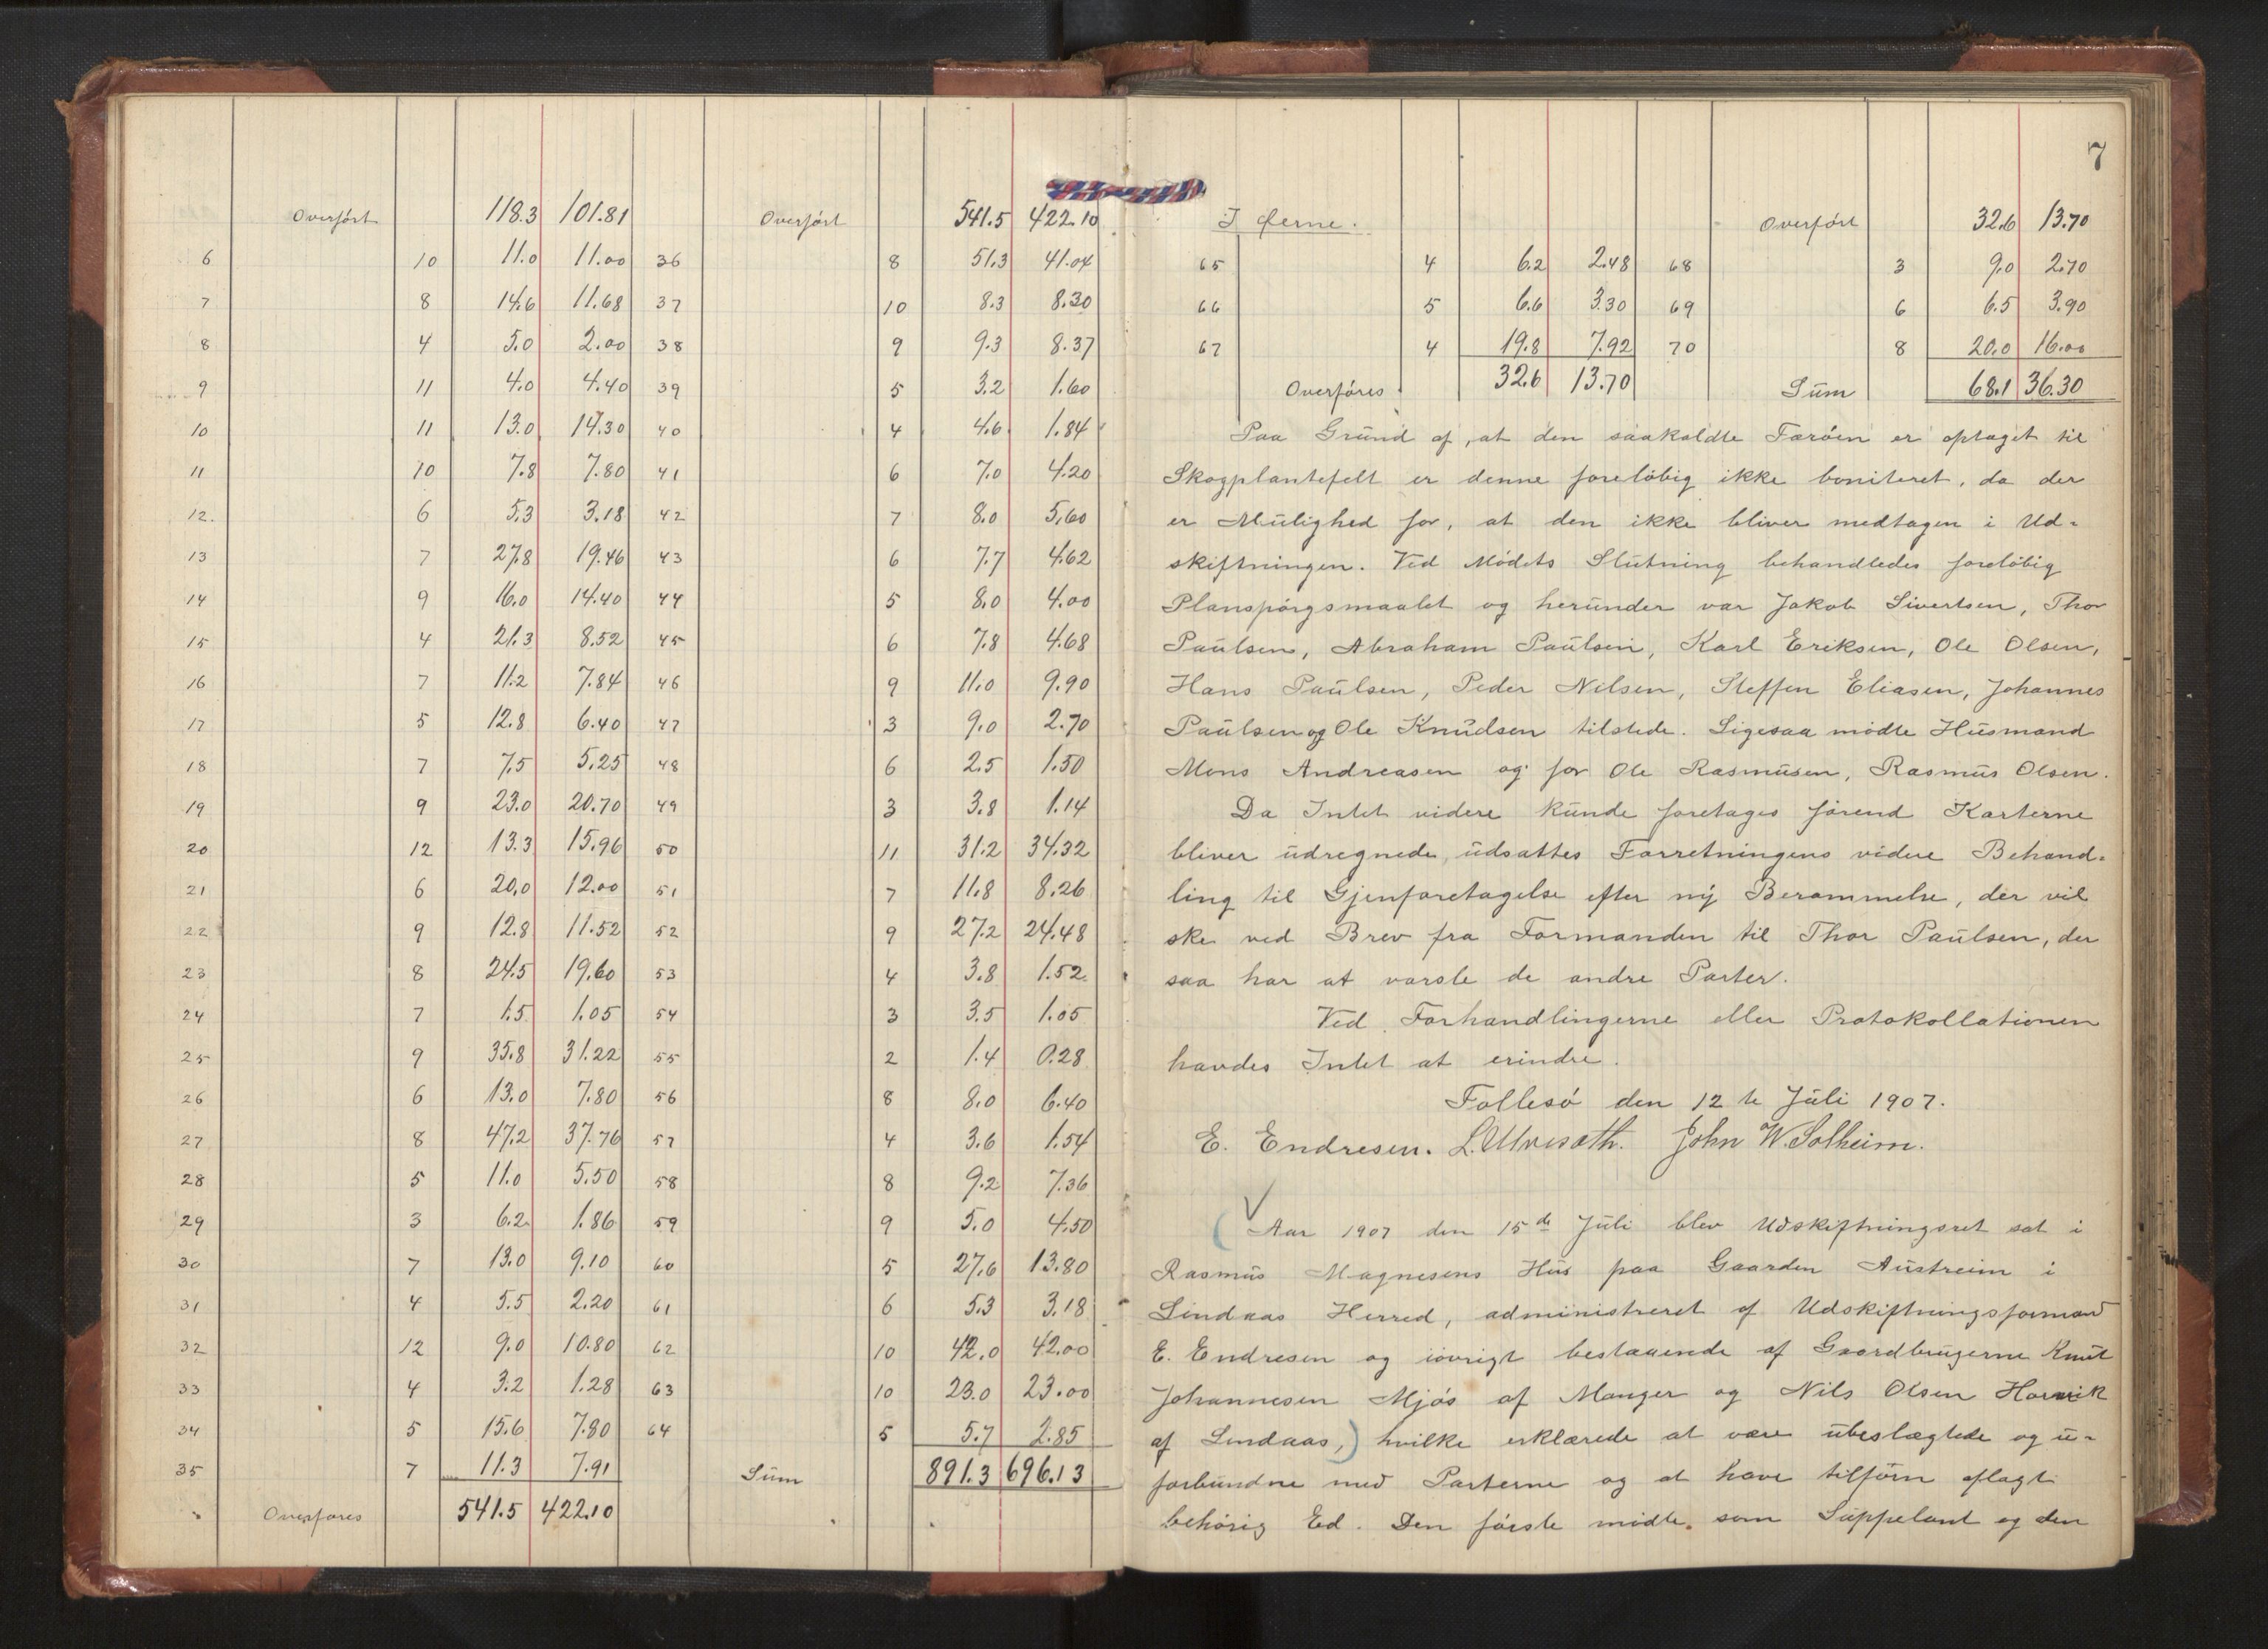 Overført 118.3 101.81
6 10 11.0 11.00
7 8 14.6 11.68
8 4 5.0 2.00
9 11 4.0 4.40
10 11 13.0 14.30
11 10 7.8 7.80
12. 6 5.3 3.18
13 7 27.8 19.46
14 9 16.0 14.40
15 4 21.3 8.52
16 7 11.2 7.84
17 5 12.8 6.40
18 7 7.5 5.25
19 9 23.0 20.70
20 12 13.3 15.96
21 6 20.0 12.00
22 9 12.8 11.52
23 8 24.5 19.60
24 7 1.5 1.05
25 9 35.8 31.22
26 6 13.0 7.80
27 8 47.2 37.76
28 5 11.0 5.50
29 3 6.2 1.86
30 7 13.0 9.10
31 4 5.5 2.20
32 12 9.0 10.80
33 4 3.2 1.28
34 5 15.6 7.80
35 7 11.3 7.91
Overføres 541.5 422.10
Overført 541.5 422.10
36 8 51.3 41.04
37 10 8.3 8.30
38 9 9.3 8.37
39 5 3.2 1.60
40 4 4.6 1.84
41 6 7.0 4.20
42 7 8.0 5.60
43 6 7.7 4.62
44 5 8.0 4.00
45 6 7.8 4.68
46 9 11.0 9.90
47 3 9.0 2.70
48 6 2.5 1.50
49 3 3.8 1.14
50 11 31.2 34.32
51 7 11.8 8.26
52 9 27.2 24.48
53 4 3.8 1.52
54 3 3.5 1.05
55 2 1.4 0.28
56 8 8.0 6.40
57 4 3.6 1.54
58 8 9.2 7.36
59 9 5.0 4.50
60 5 27.6 13.80
61 6 5.3 3.18
62 10 42.0 42.00
63 10 23.0 23.00
64 5 5.7 2.85
Sum 891.3 696.13
7
I Øerne.
65 4 6.2 2.48
66 5 6.6 3.30
67 4 19.8 7.92
Overføres 32.6 13.70
Overført 32.6 13.70
68 3 9.0 2.70
69 6 6.5 3.90
70 8 20.0 16.00
Sum 68.1 36.30
Paa Grund af, at den saakaldte Færöen er optaget til
Skogplantefelt er denne foreløbig ikke boniteret, da der
er Mulighed for, at den ikke bliver medtagen i Ud-
skiftningen. Ved Mødets Slutning behandledes foreløbig
Planspørgsmaalet og herunder var Jakob Sivertsen, Thor
Paulsen, Abraham Paulsen, Karl Eriksen, Ole Olsen,
Hans Paulsen, Peder Nilsen, Steffen Eliasen, Johannes
Paulsen og Ole Knudsen tilstede. Ligesaa mødte Husmand
Mons Andreasen og for Ole Rasmusen, Rasmus Olsen.
Da Intet videre kunde foretages førend Karterne
bliver udregnede, udsattes Forretningens videre Behand-
ling til Gjenforetagelse efter ny Berammelse, der vil
ske ved Brev fra Formanden til Thor Paulsen, der
saa har at varsle de andre Parter.
Ved Forhandlingerne eller Protokollationen
havdes Intet at erindre.
Follesø den 12te Juli 1907.
E. Endresen. L. Ulvesæth. John W. Solheim.
Aar 1907 den 15de Juli blev Udskiftningsret sat i
Rasmus Magnesens Hus paa Gaarden Austreim i
Lindaas Herred, administreret af Udskiftningsformand
E. Endresen og iøvrigt bestaaende af Gaardbrugerne Knut
Johannesen Mjøs af Manger og Nils Olsen Horvik
af Lindaas,) hvilke erklærede at være ubeslægtede og u-
forbundne med Parterne og at have tilførn aflagt
behørig Ed. Den første mødte som Suppelant og den